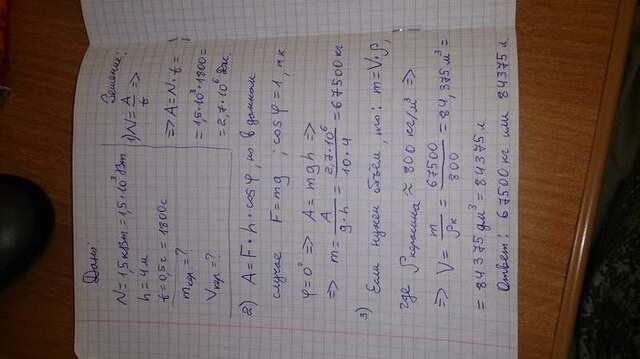 Дано:
N = 1,5 кВт = 1,5·10³ Вт
h = 4 м
t = 0,5 ч = 1800 с
m кер = ?
V кер = ?
Решение:
1) N = A/t =>
=> A = N·t =
= 1,5·10³·1800 =
= 2,7·10⁶ Дж.
2) A = F·h·cos φ, но в данном
случае F = mg; cos φ = 1, т.к
φ = 0° => A = mgh =>
=> m = A/(g·h) = 2,7·10⁶/(10·4) = 67500 кг
3) Если нужен объём, то: m = V·ρ,
где ρ керосина ≈ 800 кг/м³ =>
=> V = m/ρк = 67500/800 = 84,375 м³ =
= 84375 дм³ = 84375 л
Ответ: 67500 кг или 84375 л